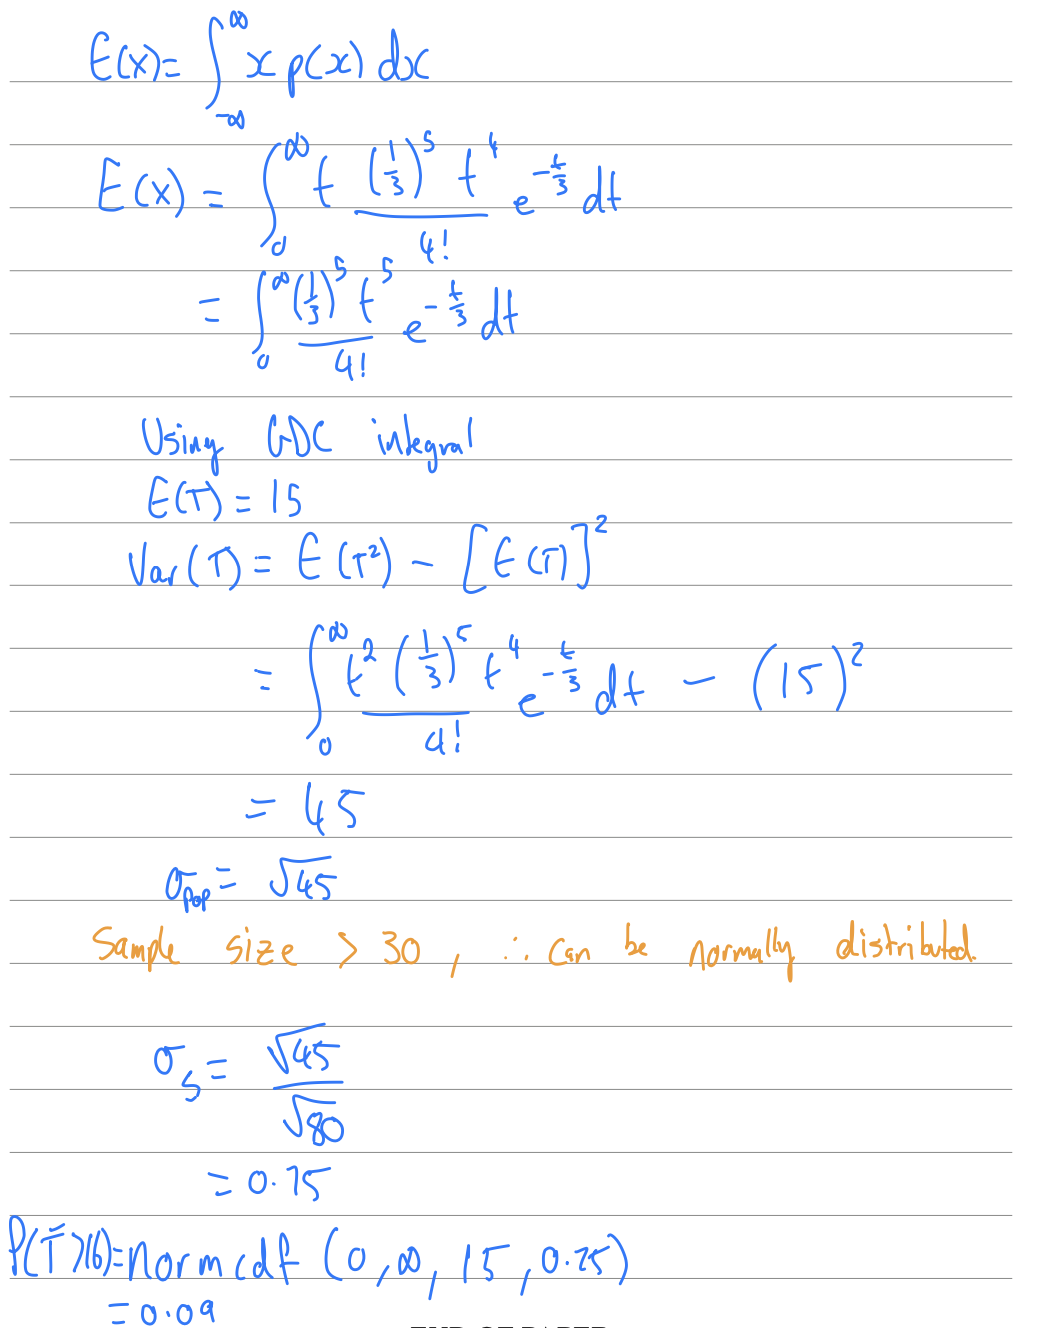 E(x)= ∫_{-∞}^{∞} x p(x) dx
E(x) = ∫_0^∞ t \frac{(\frac{1}{3})^5 t^4}{4!} e^{-\frac{t}{3}} dt
= ∫_0^∞ \frac{(\frac{1}{3})^5 t^5}{4!} e^{-\frac{t}{3}} dt
Using GDC integral
E(T) = 15
Var(T) = E(T²) - [E(T)]²
= ∫_0^∞ \frac{t² (\frac{1}{3})^5 t^4}{4!} e^{-\frac{t}{3}} dt - (15)²
= 45
σ_{pop} = √45
Sample size > 30, ∴ can be normally distributed.
σ_s = \frac{√45}{√80}
= 0.75
P(T̄>16)=normcdf (0,∞, 15, 0.75)
= 0.09